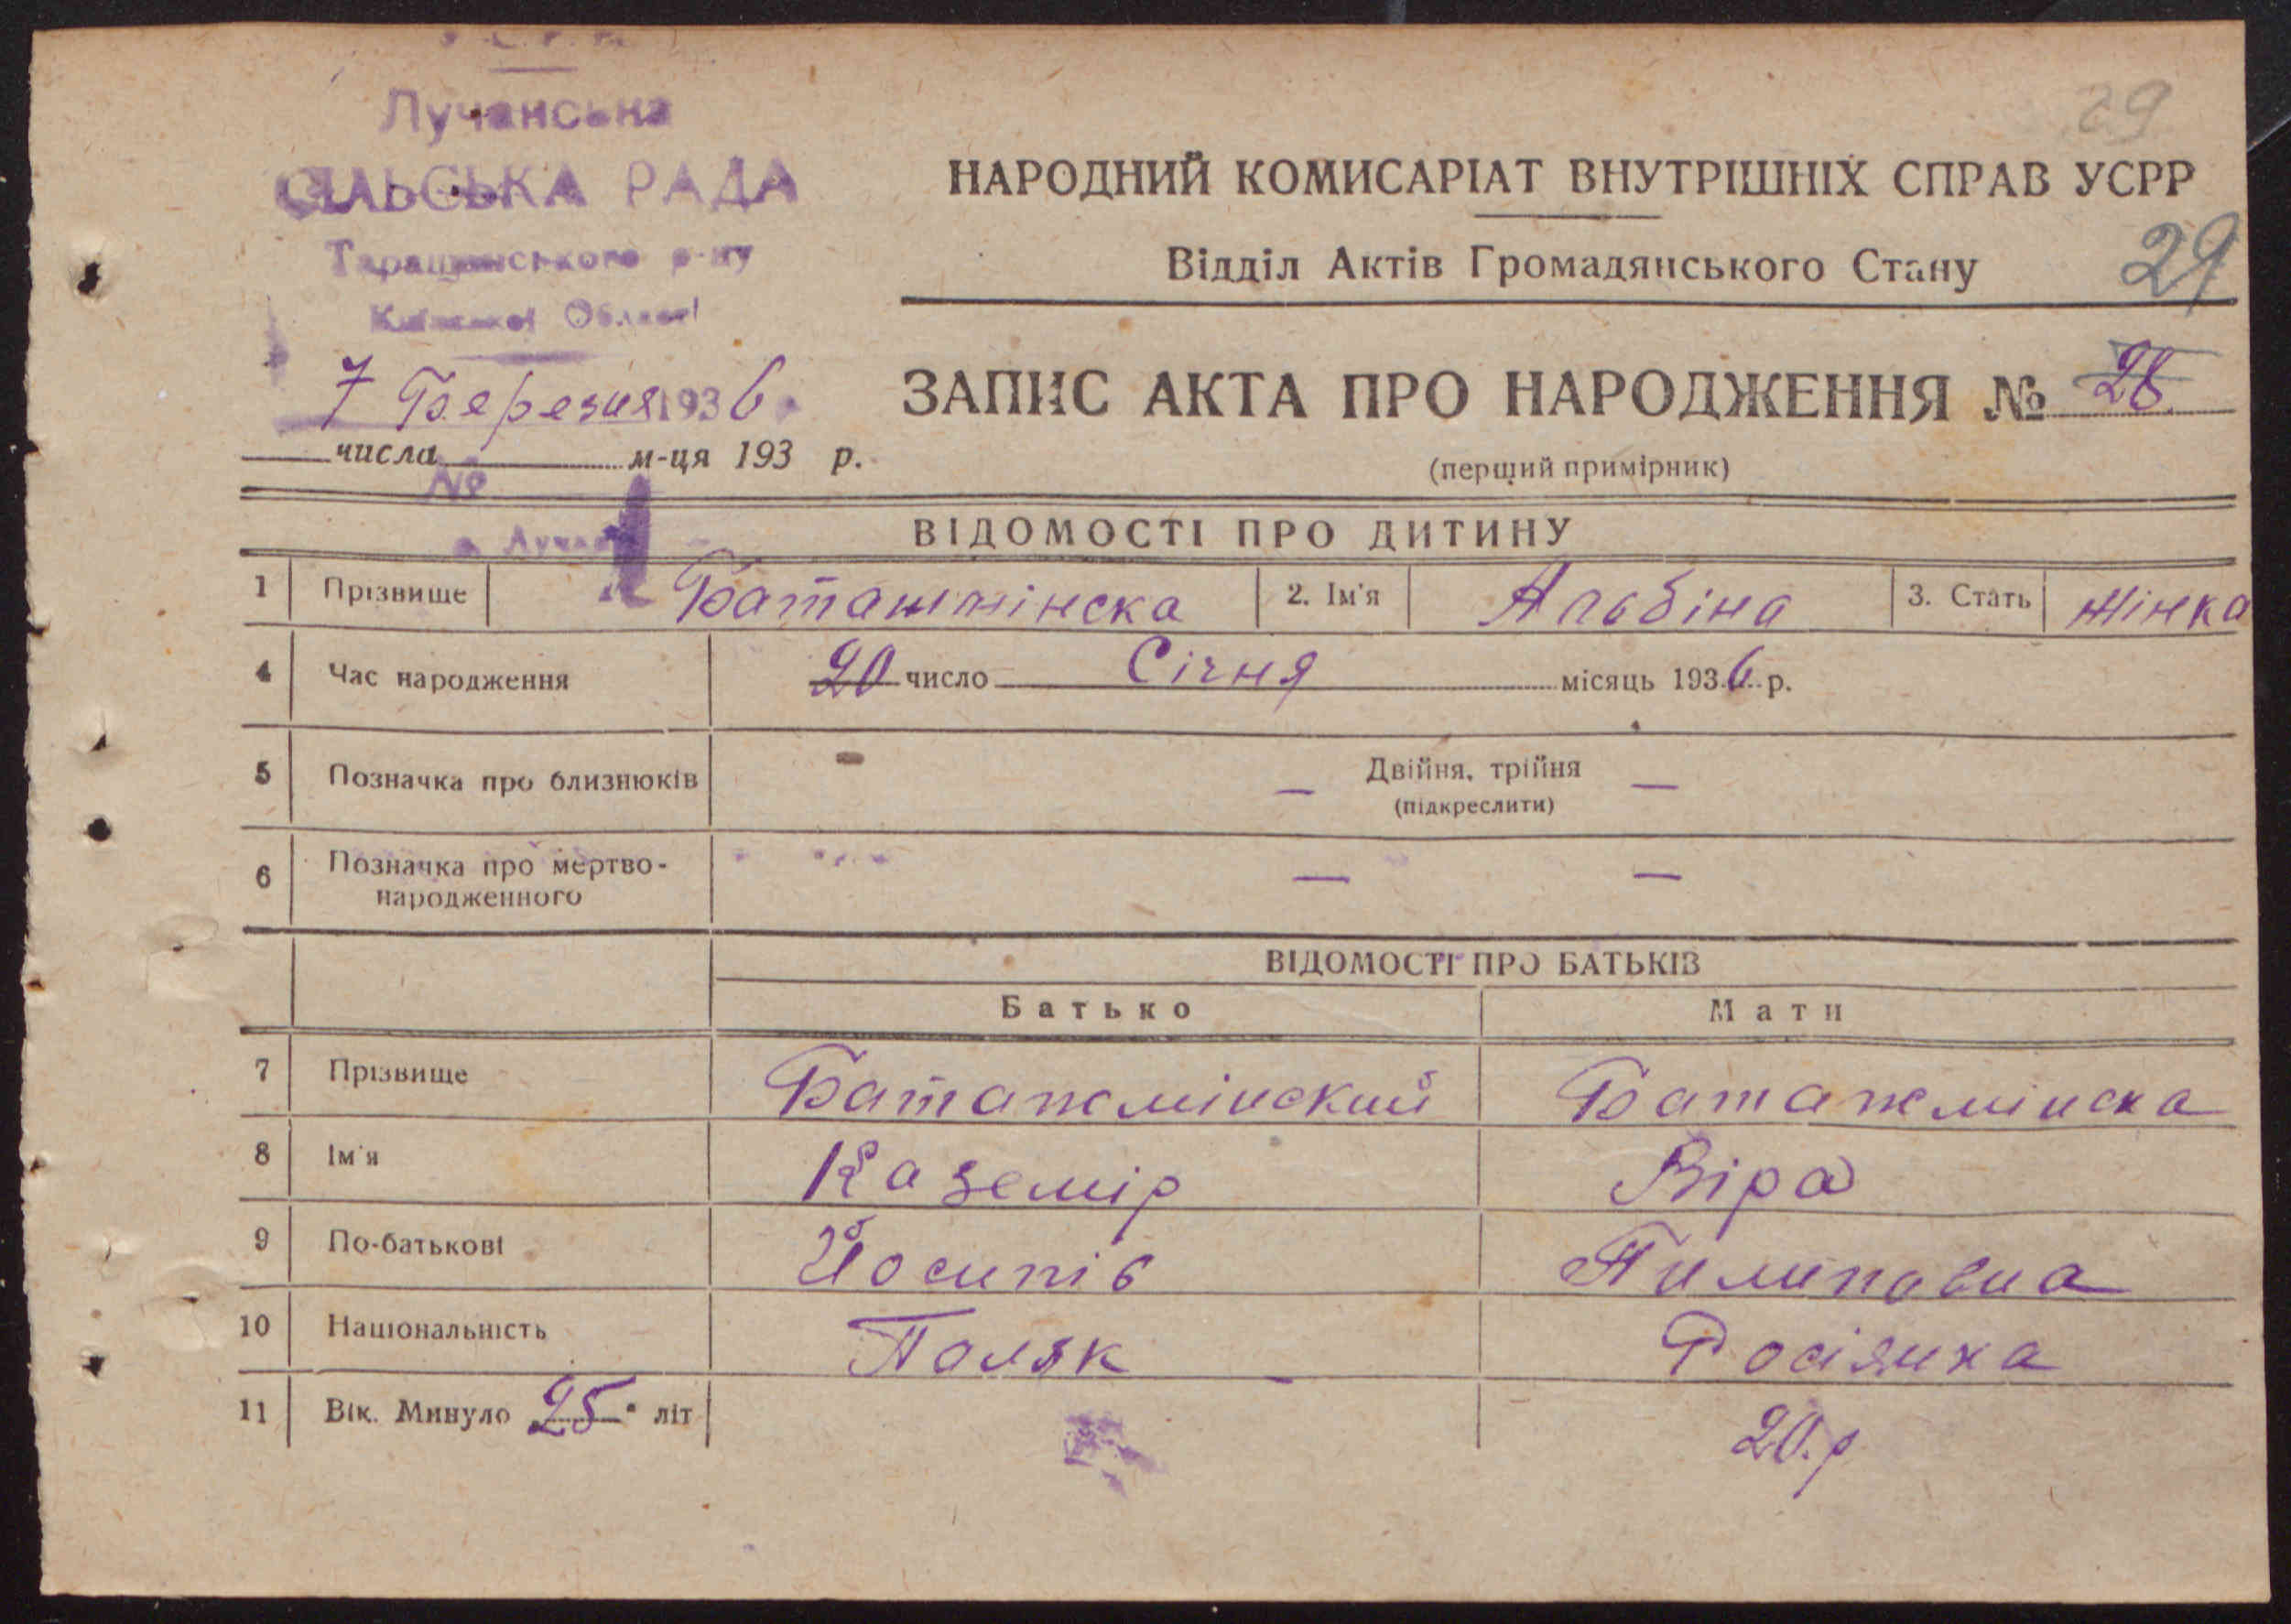 29
Лучанська
СІЛЬСЬКА РАДА
Таращанського р-ну
Київської Області
НАРОДНИЙ КОМИСАРІАТ ВНУТРІШНІХ СПРАВ УСРР
Відділ Актів Громадянського Стану
29
7 Березня 1936
ЗАПИС АКТА ПРО НАРОДЖЕННЯ № 28
числа м-ця 193 р.
(перший примірник)
№
ВІДОМОСТІ ПРО ДИТИНУ
1 Прізвище Баташмінска 2. Ім'я Альбіна 3. Стать жінка
4 Час народження 20 число Січня місяць 1936 р.
5 Позначка про близнюків — Двійня, трійня —
(підкреслити)
6 Позначка про мертво-
народженного — —
ВІДОМОСТІ ПРО БАТЬКІВ
Батько Мати
7 Прізвище Батажмінский Батажмінска
8 Ім'я Каземір Віра
9 По-батькові Йосипів Пилиповна
10 Національність Поляк Росіянка
11 Вік. Минуло „25" літ 20.р